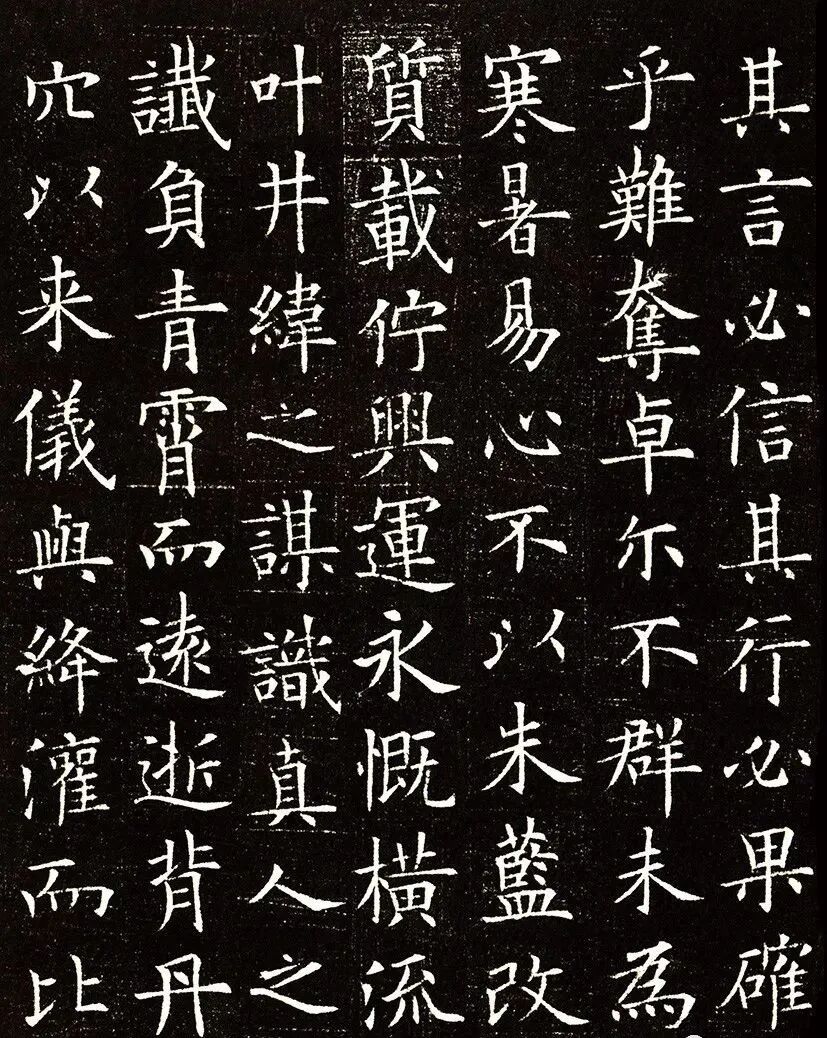 其言必信其行必果確
乎難奪卓尓不群未為
寒暑易心不以朱藍改
質載佇興運永慨橫流
叶井緯之謀識真人之
讖負青霄而遠逝背丹
穴以来儀與絳灌而比